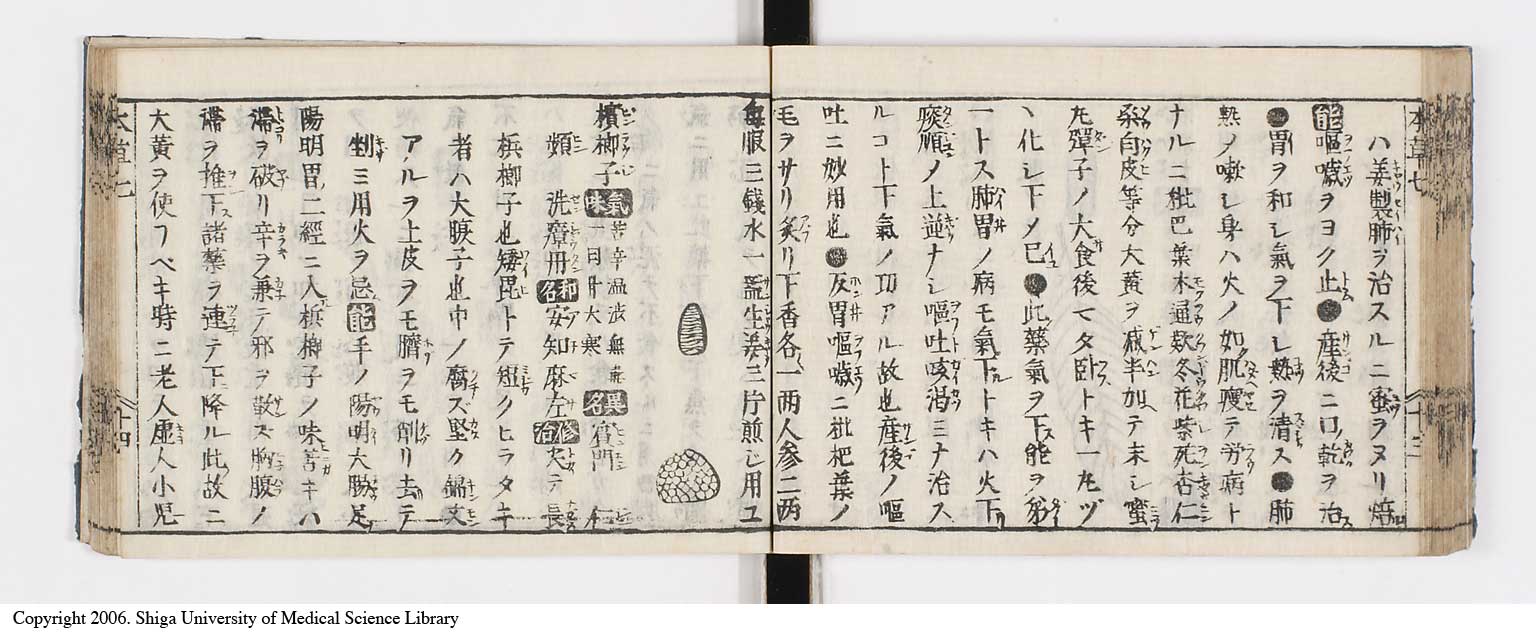 本草七
十三
ハ姜製肺ヲ治スルニ蜜ヲヌリ焙
能嘔噦ヲヨク止●産後ニ口乾ヲ治
●胃ヲ和シ氣ヲ下シ熱ヲ清ス●肺
熱ノ嗽シ身ハ火ノ如肌痩テ労病ト
ナルニ枇巴葉木通欵冬花紫苑杏仁
桑白皮等分大黄ヲ減半加テ末シ蜜
丸彈子ノ大食後マタ卧トキ一丸ヅ
ヽ化シ下メ已●此藥氣ヲ下能ヲ第
一トス肺胃ノ病モ氣下トキハ火下
痰順ノ上逆ナシ嘔吐咳渇ミナ治ス
ルコト下氣ノ功アル故也産後ノ嘔
吐ニ妙用也●反胃嘔噦ニ枇杷葉ノ
毛ヲサリ炙リ下香各一两人參二两
毎服三錢水一盞生姜三片煎じ用ユ
檳榔子 氣味苦辛温渋無毒 一曰甘大寒 異名賓門 仁
頻 洗瘴丹 和名安知麻左 修治尖テ長
梹榔子也矮毘トテ短クヒラタキ
者ハ大腹子也中ノ腐ズ堅ク錦文
アルヲ上皮ヲモ臍ヲモ削リ去テ
剉ミ用火ヲ忌能手ノ陽明大腸足
陽明胃二經ニ入梹榔子ノ味苦キハ
滞ヲ破リ辛ヲ兼テ邪ヲ散ス胸腹ノ
滞ヲ推下諸藥ヲ連テ下降ル此故ニ
大黄ヲ使フベキ時ニ老人虚人小児
十四
Copyright 2006. Shiga University of Medical Science Library